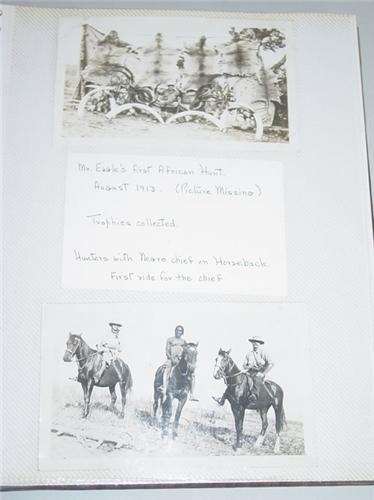 Mr. Eagle's first African Hunt.
August 1913. (Picture Missing)
Trophies collected.
Hunters with Negro chief on Horseback.
First ride for the chief